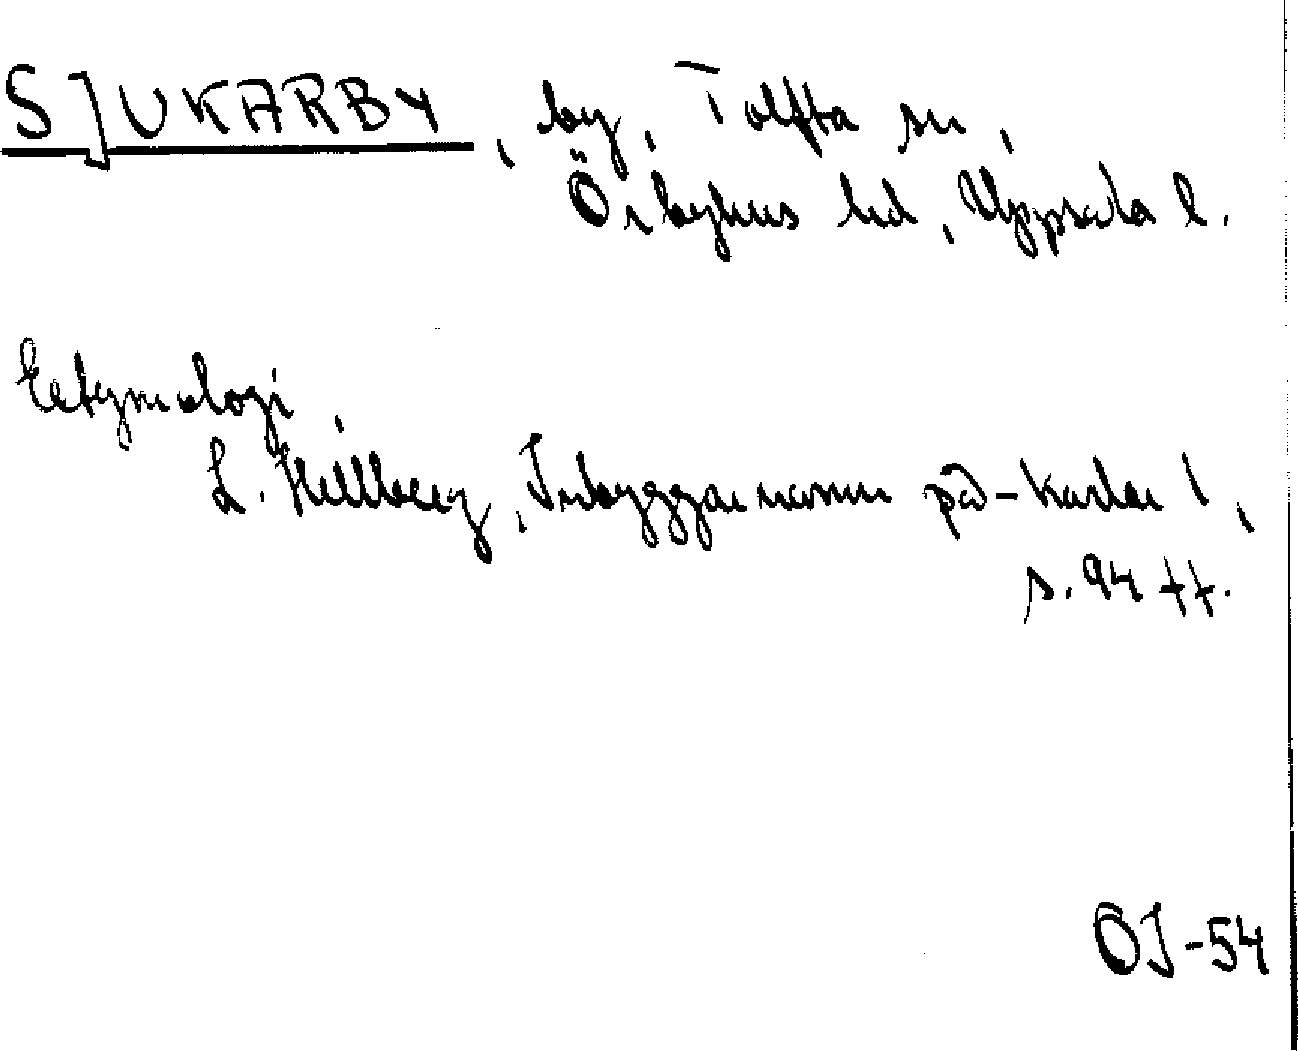 SJUKARBY, by, Tolfta sn,
Örbyhus hd, Uppsala l.
Etymologi,
L. Hellberg, Inbyggarnamn på -karlar 1,
s. 94 ff.
ÖJ-54